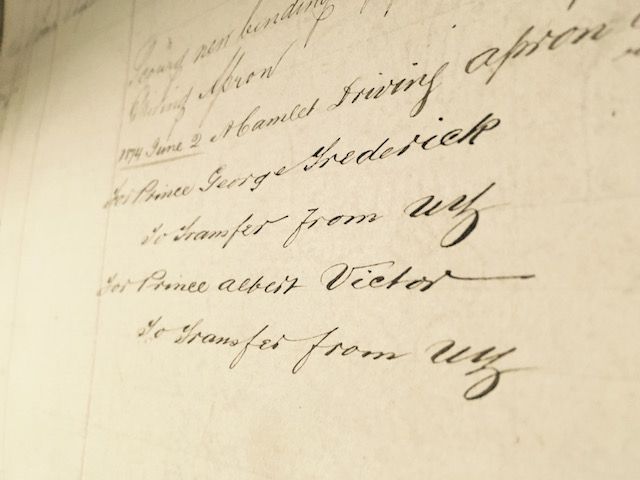 new binding
Driving Apron
1874 June 2 A Camlet Driving apron
For Prince George Frederick
To Transfer from
For Prince Albert Victor
To Transfer from